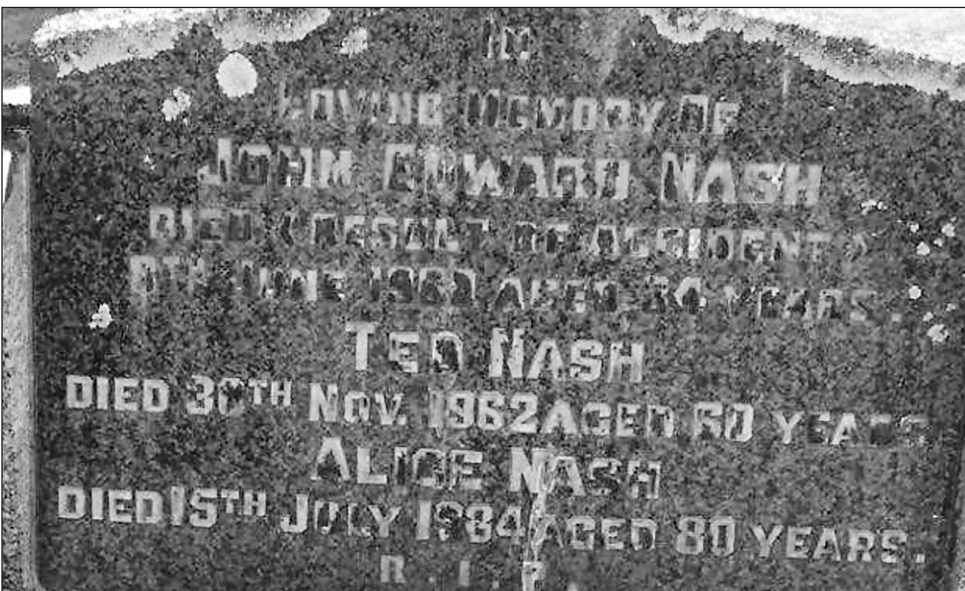 IN
LOVING MEMORY OF
JOHN EDWARD NASH
DIED (RESULT OF ACCIDENT)
8TH JUNE 1962 AGED 34 YEARS.
TED NASH
DIED 30TH NOV. 1962 AGED 60 YEARS
ALICE NASH
DIED 15TH JULY 1984 AGED 80 YEARS.
R. I. P.